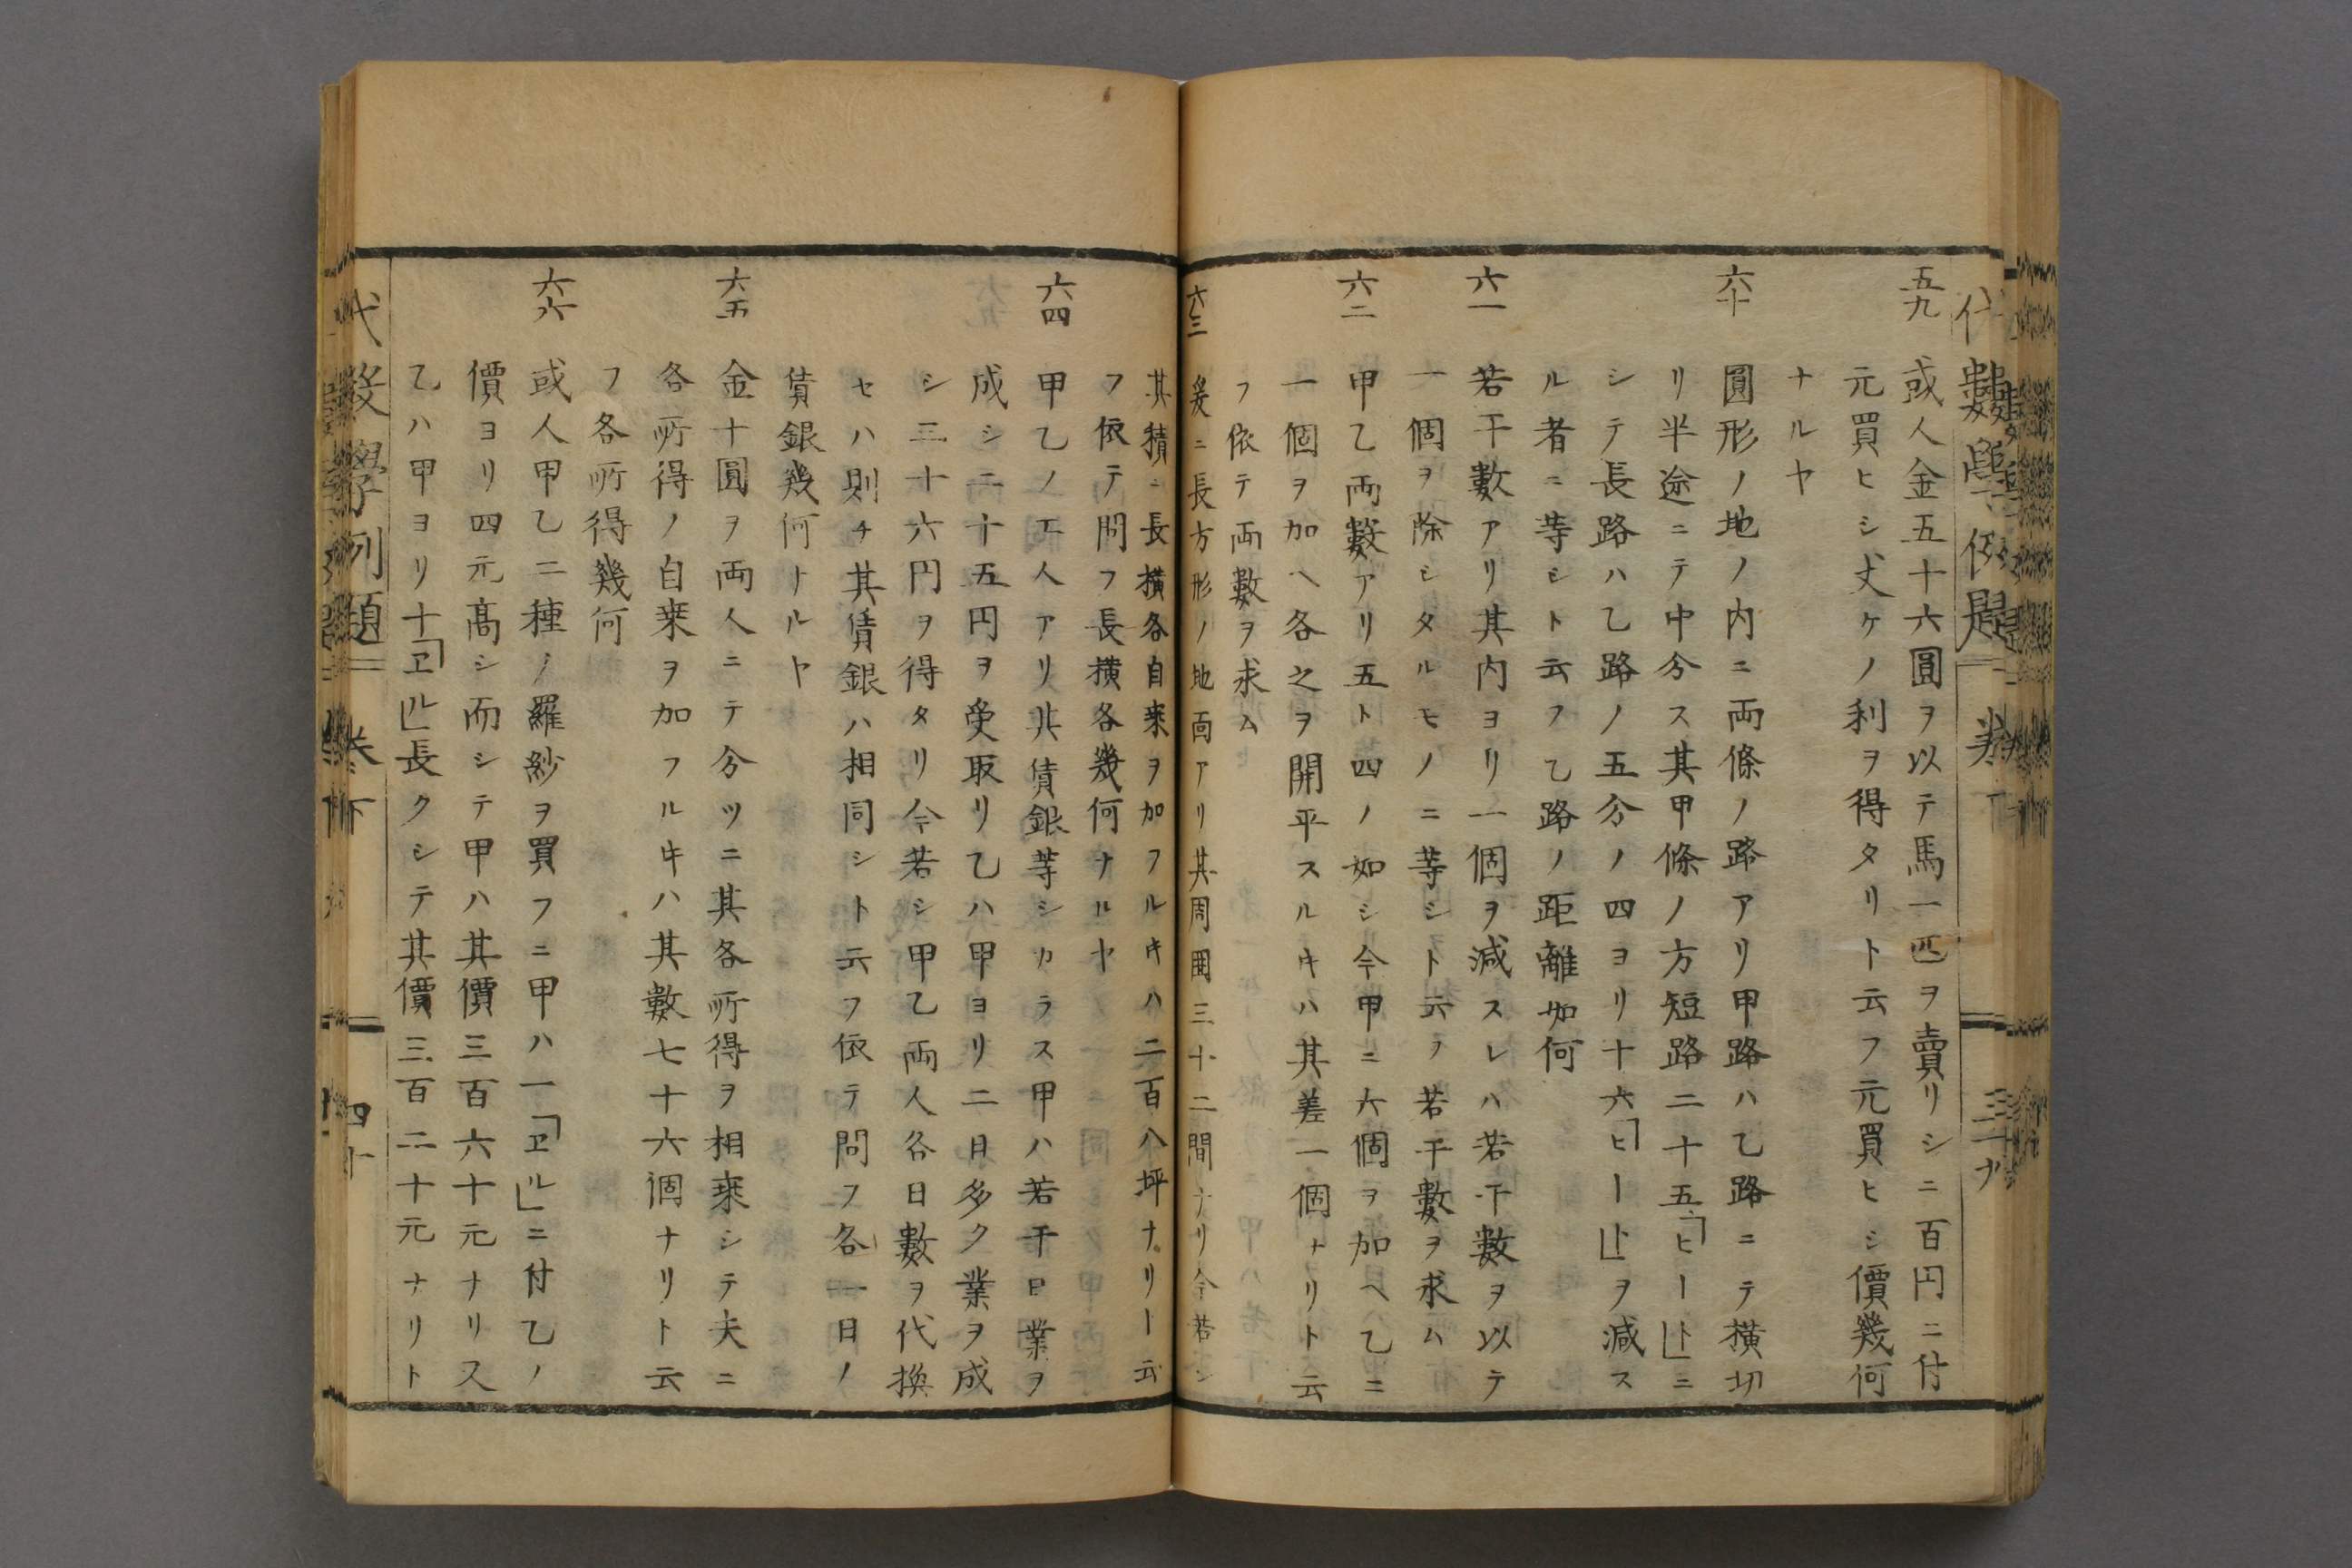 代數學例題 卷下 三十九
五九 或人金五十六圓ヲ以テ馬一匹ヲ賣リシニ百円ニ付
元買ヒシ丈ケノ利ヲ得タリト云フ元買ヒシ價幾何
ナルヤ
六十 圓形ノ地ノ内ニ両條ノ路アリ甲路ハ乙路ニテ横切
リ半途ニテ中分ス其甲條ノ方短路二十五「ヒート」ニ
シテ長路ハ乙路ノ五分ノ四ヨリ十六「ヒート」ヲ減ス
ル者ニ等シト云フ乙路ノ距離如何
六一 若干數アリ其内ヨリ一個ヲ減スレハ若干數ヲ以テ
一個ヲ除シタルモノニ等シト云フ若干數ヲ求ム
六二 甲乙両數アリ五ト四ノ如シ今甲ニ六個ヲ加ヘ乙ニ
一個ヲ加ヘ各之ヲ開平スルキハ其差一個ナリト云
フ依テ両數ヲ求ム
六三 爰ニ長方形ノ地面アリ其周圍三十二間ナリ今若シ
其積ニ長横各自乗ヲ加フルキハ二百八坪ナリト云
フ依テ問フ長横各幾何ナルヤ
六四 甲乙ノ工人アリ其賃銀等シカラス甲ハ若干日業ヲ
成シ二十五円ヲ受取リ乙ハ甲ヨリ二日多ク業ヲ成
シ三十六円ヲ得タリ今若シ甲乙両人各日數ヲ代換
セハ則チ其賃銀ハ相同シト云フ依テ問フ各一日ノ
賃銀幾何トルヤ
六五 金十圓ヲ両人ニテ分ツニ其各所得ヲ相乗シテ夫ニ
各所得ノ自乗ヲ加フルキハ其數七十六個ナリト云
フ各所得幾何
六六 或人甲乙二種ノ羅紗ヲ買フニ甲ハ一「ヱル」ニ付乙ノ
價ヨリ四元高シ而シテ甲ハ其價三百六十元ナリス
乙ハ甲ヨリ十「ヱル」長クシテ其價三百二十元ナリト
代数學例題 卷下 四十